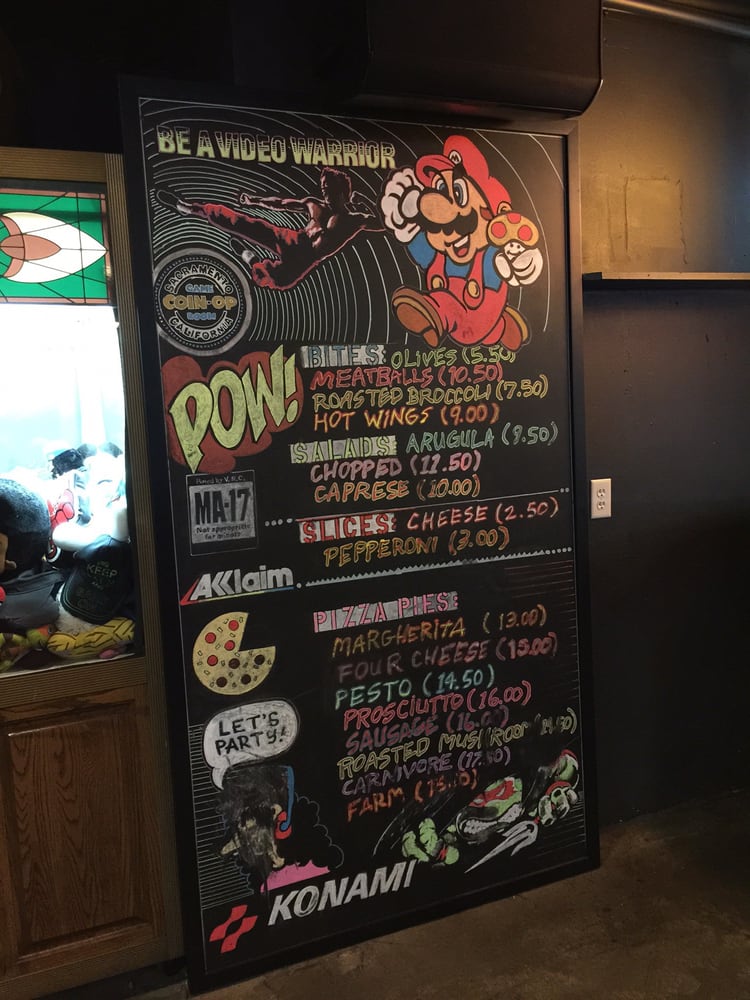 BE A VIDEO WARRIOR
M
SACRAMENTO
GAME
COIN-OP
ROOM
CALIFORNIA
POW!
BITES: OLIVES (5.50)
MEATBALLS (10.50)
ROASTED BROCCOLI (7.50)
HOT WINGS (9.00)
SALADS: ARUGULA (9.50)
CHOPPED (11.50)
CAPRESE (10.00)
Rated by V.R.C.
MA-17
Not appropriate
for minors
SLICES: CHEESE (2.50)
PEPPERONI (3.00)
AKKlaim
PIZZA PIES:
MARGHERITA (13.00)
FOUR CHEESE (15.00)
PESTO (14.50)
PROSCIUTTO (16.00)
SAUSAGE
ROASTED MUSHROOM (14.50)
CARNIVORE
FARM
LET'S
PARTY!
KONAMI
KEEP